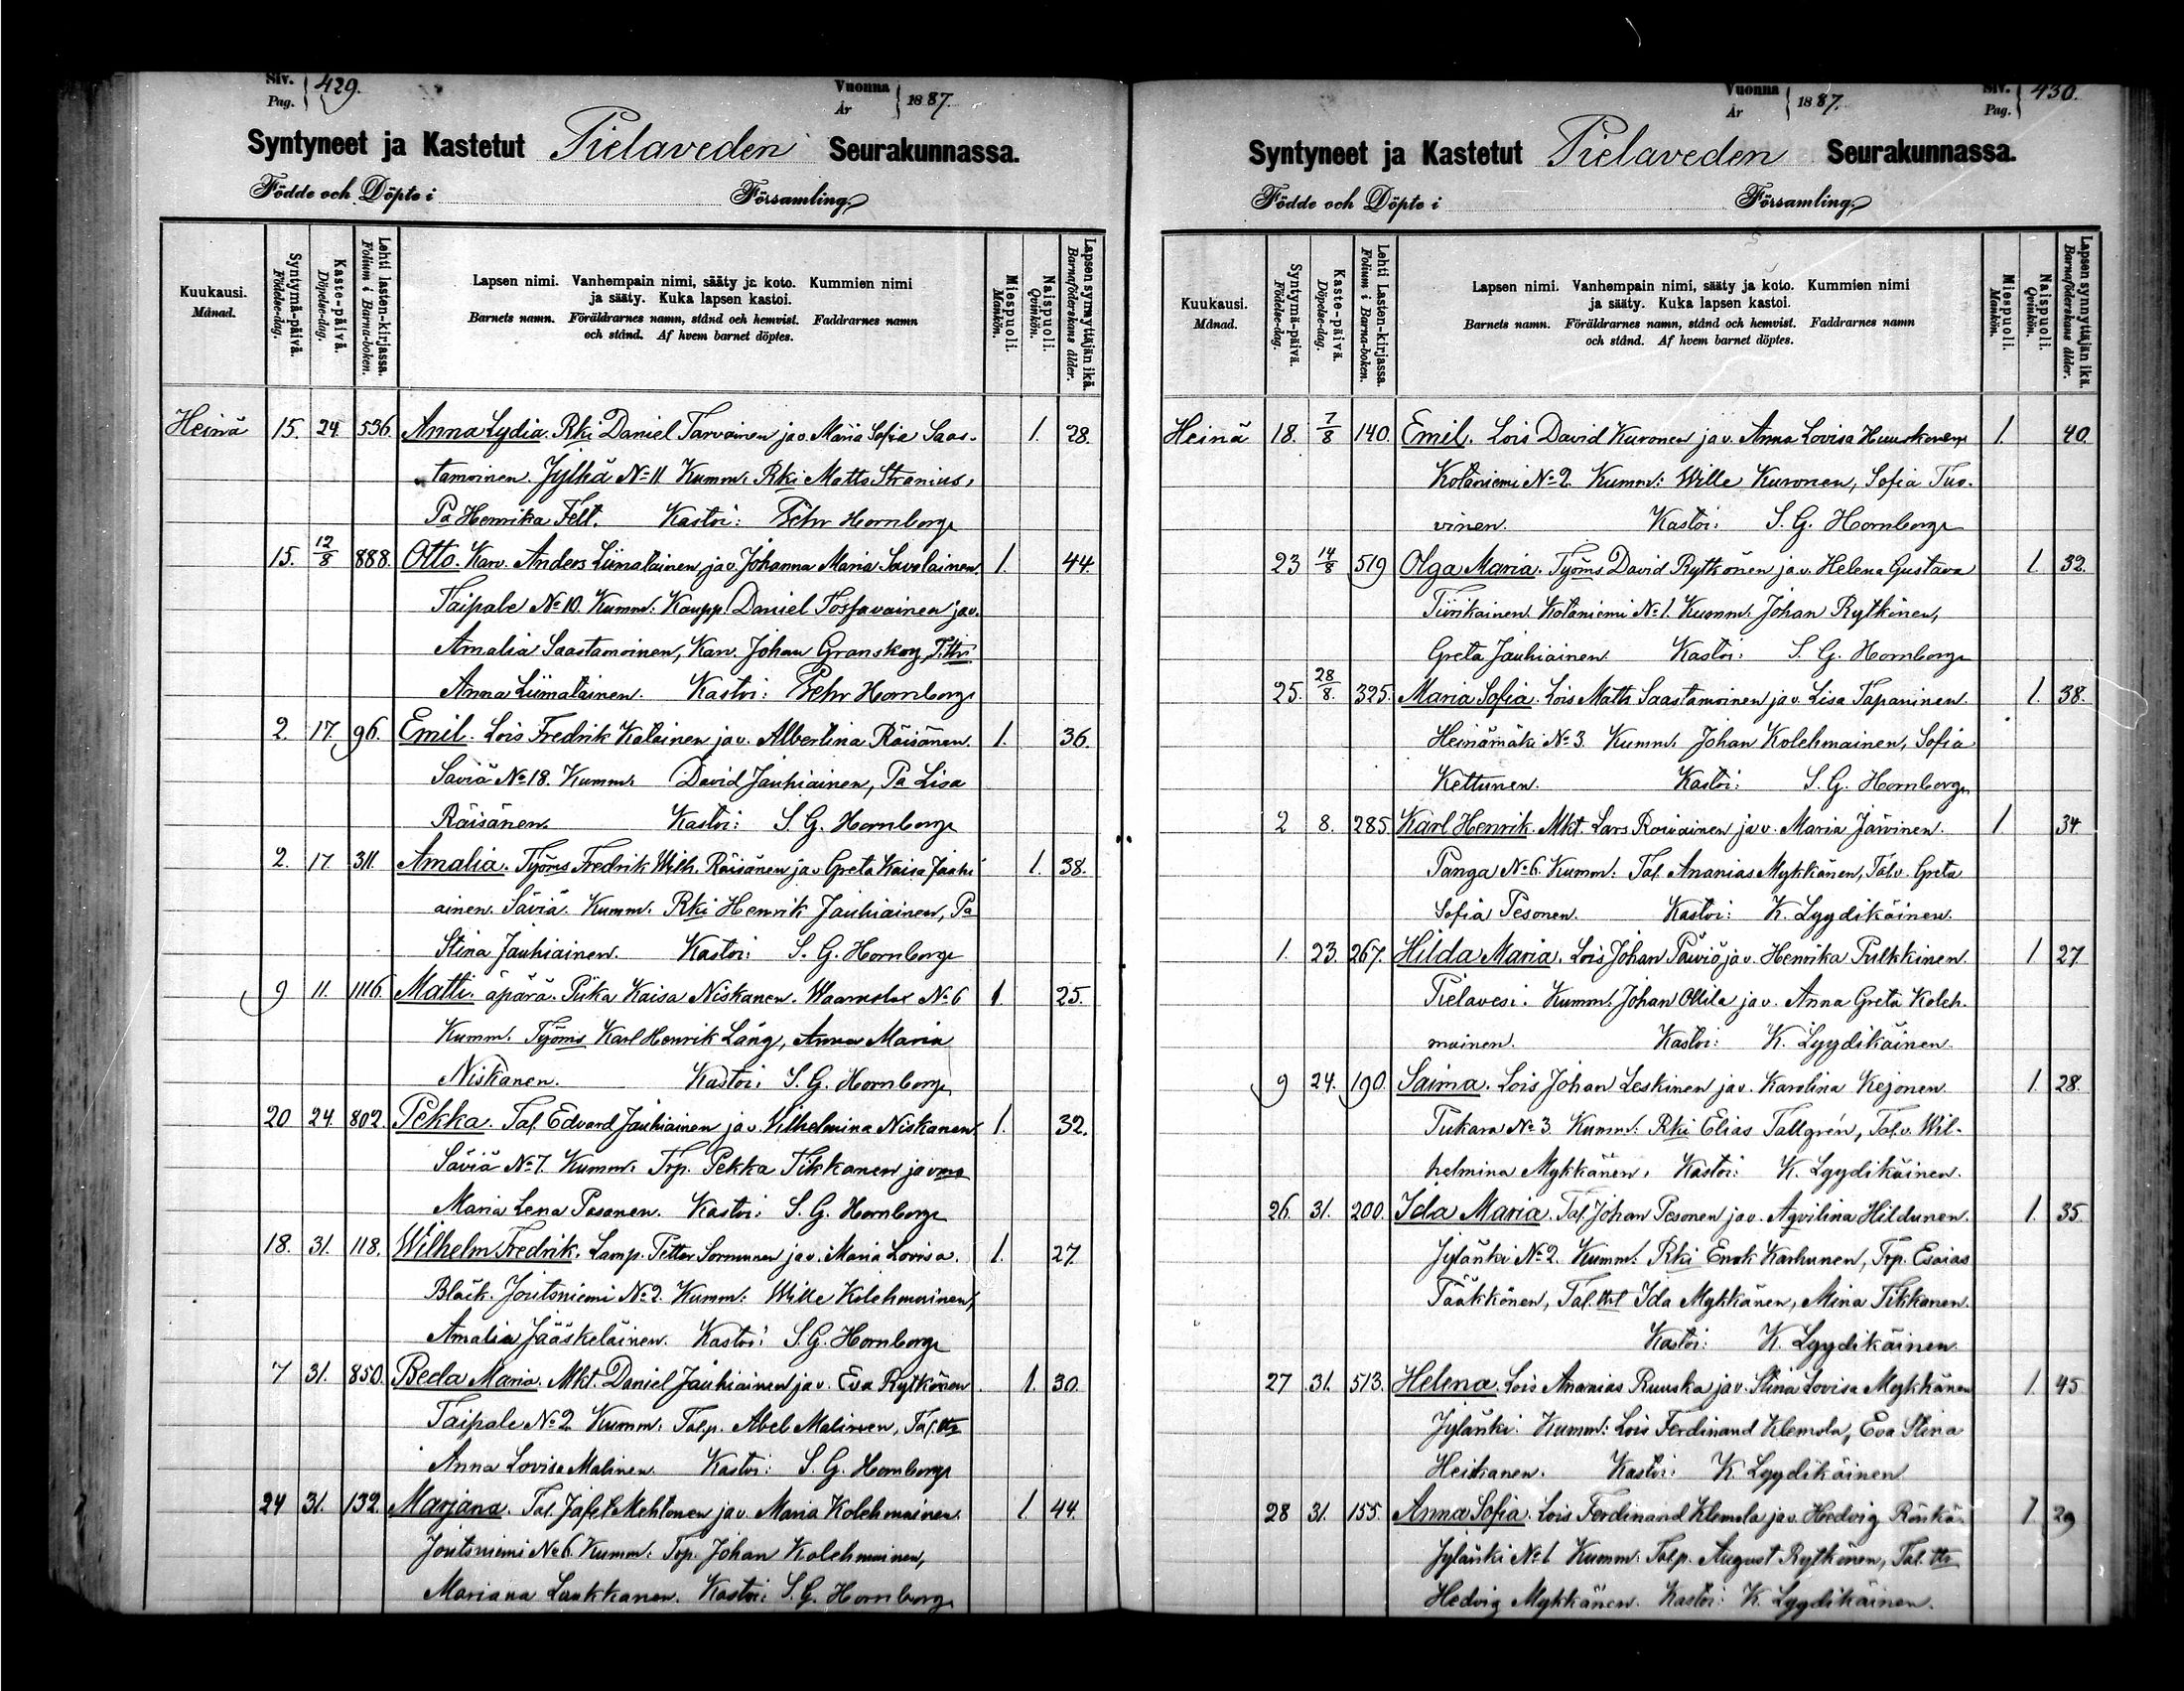 Siv. Pag. 429. Vuonna År 1887.
Syntyneet ja Kastetut Pielaveden Seurakunnassa.
Födde och Döpte i Församling.
Kuukausi. Månad.
Syntymä-päivä. Födelse-dag.
Kaste-päivä. Döpelse-dag.
Lehti lasten-kirjassa. Folium i Barna-boken.
Lapsen nimi. Vanhempain nimi, sääty ja koto. Kummien nimi
ja sääty. Kuka lapsen kastoi.
Barnets namn. Föräldrarnes namn, stånd och hemvist. Faddrarnes namn
och stånd. Af hvem barnet döptes.
Miespuoli. Mankön.
Naispuoli. Qvinkön.
Lapsen synnyttäjän ikä. Barnaföderskans ålder.
Heinä 15. 24. 536. Anna Lydia. Rki Daniel Tarvainen ja v. Maria Sofia Saas- 1. 28.
tamoinen. Jylhä No 11 Kumm. Rki Matts Stranius,
Pa Henrika Felt. Kastoi: Hornborg
15. 12/8 888. Otto. Karv. Anders Liimatainen ja v. Johanna Maria Savolainen. 1. 44.
Taipale No 10. Kumm: Kaupp. Daniel ja v.
Amalia Saastamoinen, Karv. Johan Granskog,
Anna Liimatainen. Kastoi: Hornborg
2. 17. 96. Emil. Lois Fredrik Katainen ja v. Albertina Räisänen. 1. 36.
Säviä No 18. Kumm. David Jauhiainen, Pa Lisa
Räisänen. Kastoi: S. G. Hornborg
2. 17. 311. Amalia. Työms Fredrik Wilh. Räisänen ja v. Greta Kaisa Jauhi- 1. 38.
ainen. Säviä. Kumm. Rki Henrik Jauhiainen, Pa
Stina Jauhiainen. Kastoi: S. G. Hornborg
9 11. 1116. Matti. äpärä. Piika Kaisa Niskanen. No 6 1. 25.
Kumm. Työms Karl Henrik Lång, Anna Maria
Niskanen. Kastoi: S. G. Hornborg
20 24. 802. Pekka. Tal. Edvard Jauhiainen ja v. Wilhelmina Niskanen. 1. 32.
Säviä No 7. Kumm. Trp. Pekka Tikkanen ja vmo
Maria Lena Pesonen. Kastoi: S. G. Hornborg
18. 31. 118. Wilhelm Fredrik. Lamp. Petter Sormunen ja v. Maria Lovisa. 1. 27.
Bläck. Joutsniemi No 2. Kumm: Wille Kolehmainen,
Amalia Jääskeläinen. Kastoi: S. G. Hornborg
7 31. 850. Beda Maria. Mkt. Daniel Jauhiainen ja v. Eva Rytkönen 1. 30.
Taipale No 2 Kumm: Tal.p. Abel Malinen, Tal. ttr
Anna Lovisa Malinen. Kastoi: S. G. Hornborg
24 31. 132. Marjana. Tal. Jafet Mehtonen ja v. Maria Kolehmainen. 1. 44.
Joutsniemi No 6. Kumm: Trp. Johan Kolehmainen,
Mariana Laukkanen. Kastoi: S. G. Hornborg
Siv. Pag. 430. Vuonna År 1887.
Syntyneet ja Kastetut Pielaveden Seurakunnassa.
Födde och Döpte i Församling.
Kuukausi. Månad.
Syntymä-päivä. Födelse-dag.
Kaste-päivä. Döpelse-dag.
Lehti Lasten-kirjassa. Folium i Barna-boken.
Lapsen nimi. Vanhempain nimi, sääty ja koto. Kummien nimi
ja sääty. Kuka lapsen kastoi.
Barnets namn. Föräldrarnes namn, stånd och hemvist. Faddrarnes namn
och stånd. Af hvem barnet döptes.
Miespuoli. Mankön.
Naispuoli. Qvinkön.
Lapsen synnyttäjän ikä. Barnaföderskans ålder.
Heinä 18. 7/8 140. Emil. Lois David Kuronen ja v. Anna Lovisa Huuskonen 1. 40.
Kotaniemi No 2 Kumm: Wille Kuronen, Sofia Tuo-
vinen. Kastoi: S. G. Hornborg
23 14/8 519 Olga Maria. Työms David Rytkönen ja v. Helena Gustava 1. 32.
Tiirikainen. Kotaniemi No 1. Kumm. Johan Rytkönen,
Greta Jauhiainen. Kastoi: S. G. Hornborg
25. 28/8. 325. Maria Sofia. Lois Matts Saastamoinen ja v. Lisa Tapaninen. 1. 38.
Heinämäki No 3. Kumm. Johan Kolehmainen, Sofia
Kettunen. Kastoi: S. G. Hornborg
2 8. 285. Karl Henrik. Mkt. Lars Roivainen ja v. Maria Järvinen. 1. 34
Panga No 6. Kumm: Tal. Ananias Mykkänen, Tal.v. Greta
Sofia Pesonen. Kastoi: K. Lyydikäinen.
1. 23. 267. Hilda Maria. Lois Johan Päiviö ja v. Henrika Pulkkinen. 1 27.
Pielavesi. Kumm. Johan Ollila ja v. Anna Greta Koleh-
mainen. Kastoi: K. Lyydikäinen.
9 24. 190. Saima. Lois Johan Leskinen ja v. Karolina Kejonen. 1. 28.
Tukara No 3. Kumm: Rki Elias Tallgrén, Tal.v. Wil-
helmina Mykkänen. Kastoi: K. Lyydikäinen.
26. 31. 200. Ida Maria. Tal. Johan Pesonen ja v. Aqvilina Hildunen. 1. 35.
Jylänki No 2. Kumm: Rki Enok Karhunen, Trp. Esaias
Pääkkönen, Tal. ttret Ida Mykkänen, Mina Tikkanen.
Kastoi: K. Lyydikäinen
27 31. 513. Helena. Lois Ananias Ruuska ja v. Stina Lovisa Mykkänen 1. 45
Jylänki. Kumm: Lois Ferdinand Klemola, Eva Stina
Heikanen. Kastoi: K. Lyydikäinen
28 31. 155. Anna Sofia. Lois Ferdinand Klemola ja v. Hedvig Rönkö- 1. 29
Jylänki No 1 Kumm: Tal.p. August Rytkönen, Tal. ttr
Hedvig Mykkänen. Kastoi: K. Lyydikäinen.